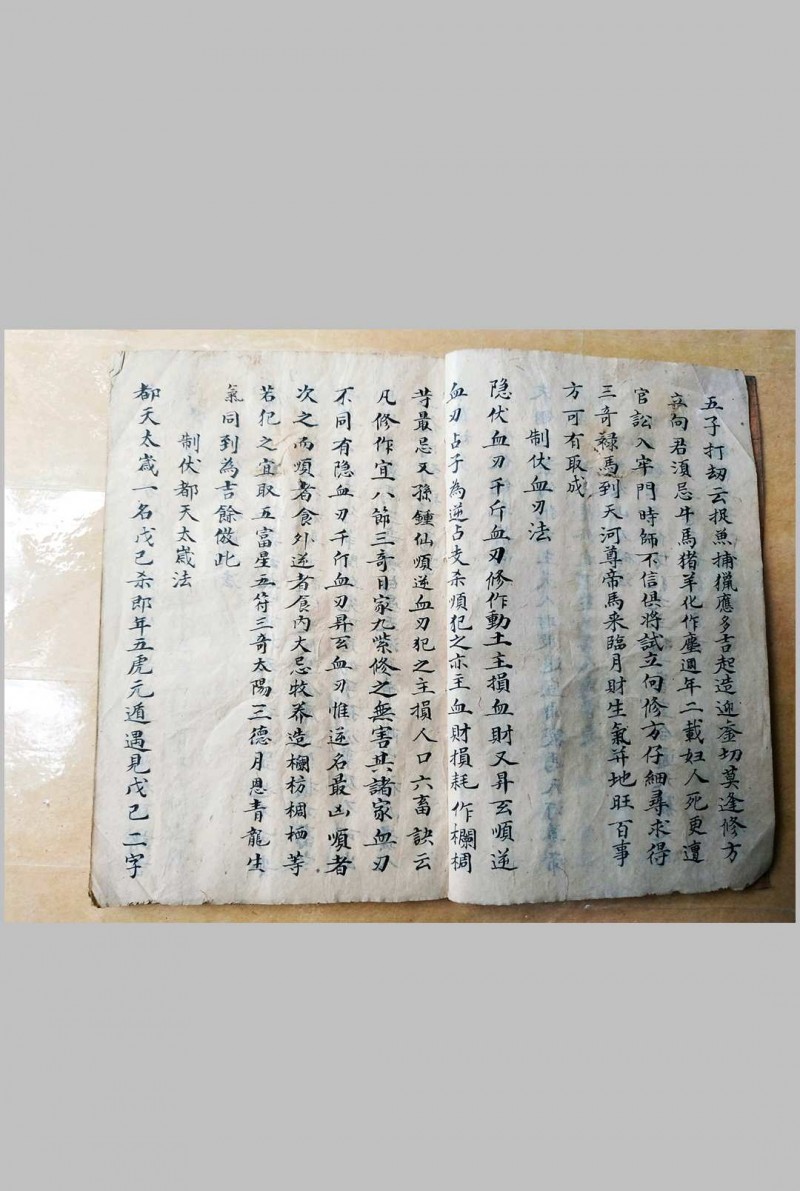 五子打刼云捉魚捕獵應多吉起造迎莫切莫逢修方
立向君須忌牛馬猪羊化作塵週年二載妇人死更遭
官訟入牢門時師不信俱將試立向修方仔細尋求得
三奇祿馬到天河尊帝馬来臨月財生氣并地旺百事
方可有取成
制伏血刃法
隐伏血刃千斤血刃修作動土主損血財又昇玄順逆
血刃占子為逆占支杀順犯之亦主血財損耗作欄椆
最忌又孫鍾仙順逆血刃犯之主損人口六畜訣云
凡修作宜八節三奇日家九紫修之無害其諸家血刃
不同有隐血刃千斤血刃昇玄血刃惟逆名最凶順者
次之而順者食外逆者食內大忌牧养造欄枋椆栖等
若犯之宜取五富星五符三奇太陽三德月恩青龍生
氣同到為吉餘倣此
制伏都天太歲法
都天太歲一名戊己杀郎年五虎元遁遇見戊己二字